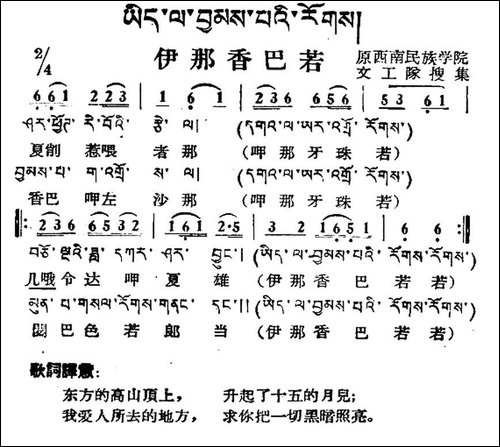 ཡིད་ལ་བྱམས་པའི་རོགས།
伊那香巴若
2/4
原西南民族学院
文工隊搜集
6 6 1 2 2 3 | 1 6 1 | 2 3 6 6 5 6 | 5 3 6 1 |
ཤར་ཕྱོཊ་རི་བོའི་རྩེ་ལ། (དགའ་ལ་ཨར་འགྲོ་རོགས་)
夏削惹喂者那 (呷那牙珠若)
བྱམས་པ་ག་འགྲོ་ས་ལ། (དགའ་ལ་ཨར་འགྲོ་རོགས་)
香巴呷左沙那 (呷那牙珠若)
2 3 6 6 5 3 2 | 1 6 1 2·5 | 3 2 1 6 5 1 | 6 6 :|
བཅོ་ལྔའི་ཟླ་དཀར་ཤར་བྱུང་། (ཡིད་ལ་བྱམས་པའི་རོགས་རོགས)
几哦令达呷夏雄 (伊那香巴若若)
མུན་པ་གསལ་རོགས་གནང་དང་།། (ཡིད་ལ་བྱམས་པའི་རོགས་རོགས)
巴色若郎当 (伊那香巴若若)
歌詞譯意:
东方的高山頂上， 升起了十五的月兒；
我爱人所去的地方， 求你把一切黑暗照亮。